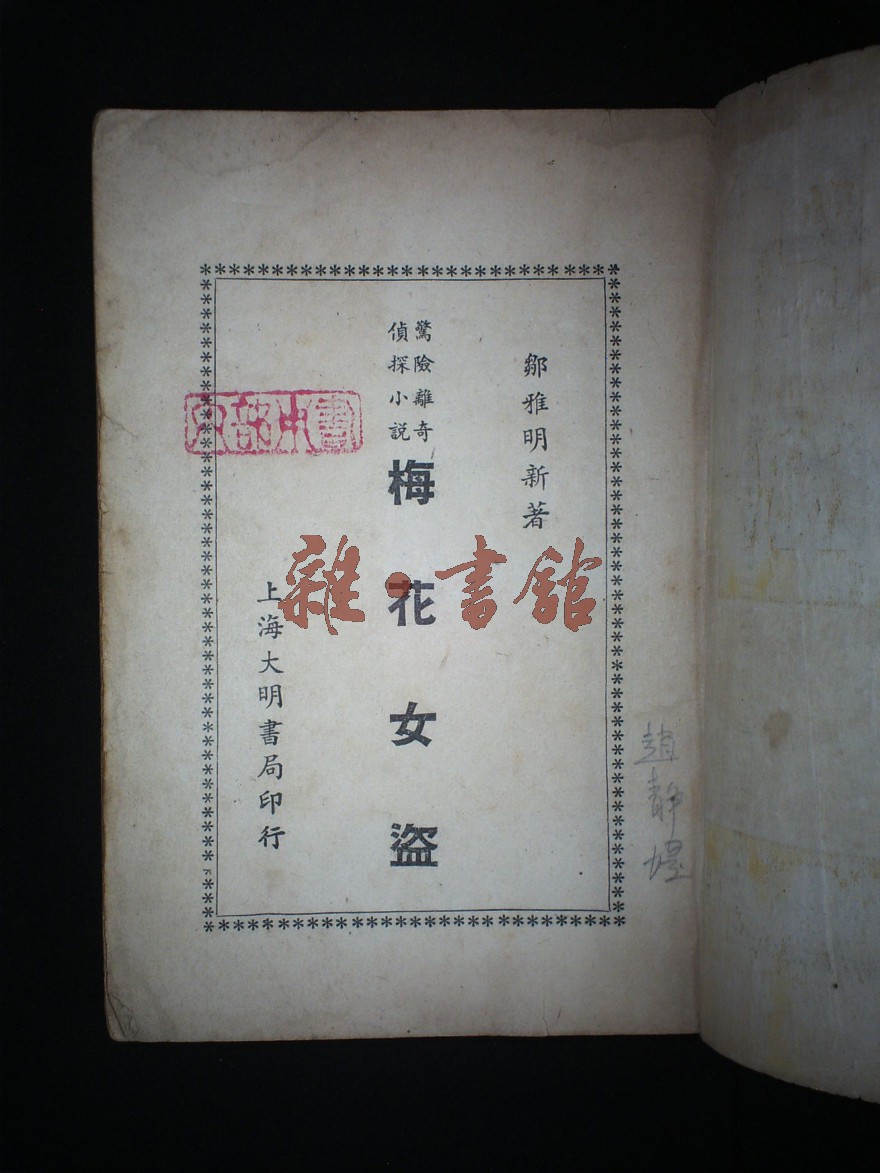 鄒雅明新著
驚險離奇
偵探小説
梅花女盜
上海大明書局印行
雜·書館
趙静